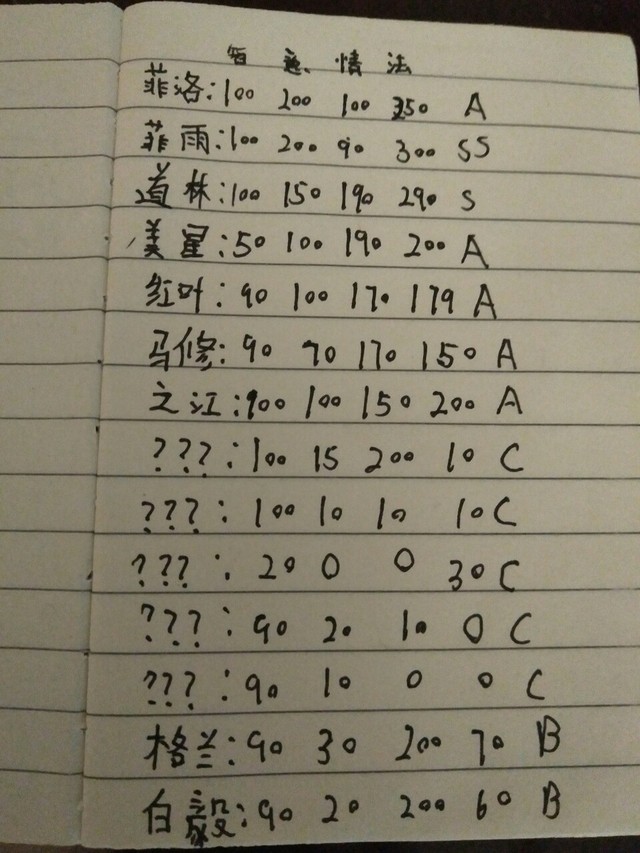 智 意 情 法
菲洛:100 200 100 350 A
菲雨:100 200 90 300 SS
道林:100 150 190 290 S
美星:50 100 190 200 A
红叶:90 100 170 179 A
马修:90 70 170 150 A
之江:900 100 150 200 A
???:100 15 200 10 C
???:100 10 10 10 C
???:20 0 0 30 C
???:90 20 10 0 C
???:90 10 0 0 C
格兰:90 30 200 70 B
白毅:90 20 200 60 B